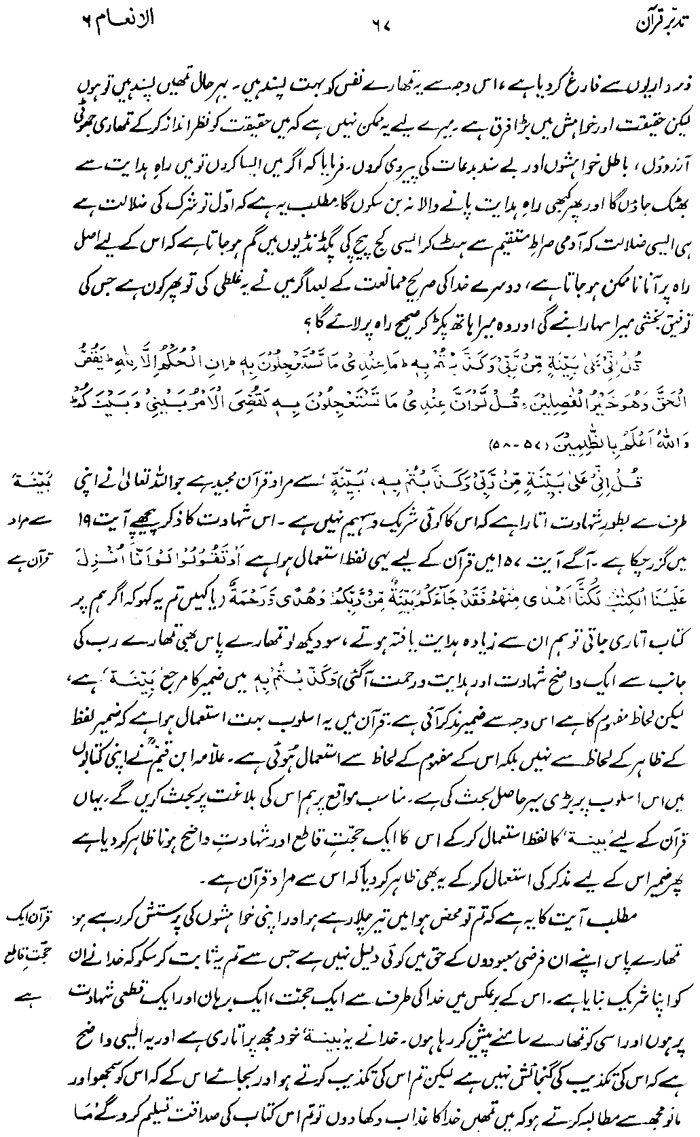 تدبرِ قرآن ۶۷ الانعام ۶
ذمہ داریوں سے فارغ کر دیا ہے، اس وجہ سے یہ تمھارے نفس کو بہت پسند ہیں۔ بہرحال تمھیں پسند ہیں تو ہوں
لیکن حقیقت اور خواہش میں بڑا فرق ہے۔ میرے لیے یہ ممکن نہیں ہے کہ میں حقیقت کو نظر انداز کر کے تمھاری جھوٹی
آرزوؤں، باطل خواہشوں اور بے سند بدعات کی پیروی کروں۔ فرمایا کہ اگر میں ایسا کروں تو میں راہِ ہدایت سے
بھٹک جاؤں گا اور پھر کبھی راہِ ہدایت پانے والا نہ بن سکوں گا۔ مطلب یہ ہے کہ اول تو شرک کی ضلالت ہے
ہی ایسی ضلالت کہ آدمی صراطِ مستقیم سے ہٹ کر ایسی کج پیچ کی پگڈنڈیوں میں گم ہو جاتا ہے کہ اس کے لیے اصل
راہ پر آنا ناممکن ہو جاتا ہے، دوسرے خدا کی صریح ممانعت کے بعد اگر میں نے یہ غلطی کی تو پھر کون ہے جس کی
توفیق بخشی میرا سہارا بنے گی اور وہ میرا ہاتھ پکڑ کر صحیح راہ پر لائے گا؟
قُلْ اِنِّیْ عَلٰی بَیِّنَۃٍ مِّنْ رَّبِّیْ وَکَذَّبْتُمْ بِہٖ ؕ مَا عِنْدِیْ مَا تَسْتَعْجِلُوْنَ بِہٖ ؕ اِنِ الْحُکْمُ اِلَّا لِلّٰہِ ؕ یَقُصُّ
الْحَقَّ وَھُوَ خَیْرُ الْفٰصِلِیْنَ۔ قُلْ لَّوْ اَنَّ عِنْدِیْ مَا تَسْتَعْجِلُوْنَ بِہٖ لَقُضِیَ الْاَمْرُ بَیْنِیْ وَبَیْنَکُمْ ؕ
وَاللہُ اَعْلَمُ بِالظّٰلِمِیْنَ (۵۷-۵۸)
قُلْ اِنِّیْ عَلٰی بَیِّنَۃٍ مِّنْ رَّبِّیْ وَکَذَّبْتُمْ بِہٖ، 'بَیِّنَۃٍ' سے مراد قرآن مجید ہے جو اللہ تعالیٰ نے اپنی
'بَیِّنَۃ'
طرف سے بطور شہادت اتارا ہے کہ اس کا کوئی شریک و سہیم نہیں ہے۔ اس شہادت کا ذکر پیچھے آیت ۱۹
سے مراد
میں گزر چکا ہے۔ آگے آیت ۱۵۷ میں قرآن کے لیے یہی لفظ استعمال ہوا ہے اَوْ تَقُوْلُوْا لَوْ اَنَّآ اُنْزِلَ
قرآن ہے
عَلَیْنَا الْکِتٰبُ لَکُنَّآ اَھْدٰی مِنْھُمْ فَقَدْ جَآءَکُمْ بَیِّنَۃٌ مِّنْ رَّبِّکُمْ وَھُدًی وَّرَحْمَۃٌ (یا کہیں تم یہ کہو کہ اگر ہم پر
کتاب اتاری جاتی تو ہم ان سے زیادہ ہدایت یافتہ ہوتے، سو دیکھ لو تمھارے پاس بھی تمھارے رب کی
جانب سے ایک واضح شہادت اور ہدایت و رحمت آگئی) وَکَذَّبْتُمْ بِہٖ میں ضمیر کا مرجع 'بَیِّنَۃ' ہے،
لیکن لحاظ مفہوم کا ہے اس وجہ سے ضمیر مذکر آئی ہے۔ قرآن میں یہ اسلوب بہت استعمال ہوا ہے کہ ضمیر لفظ
کے ظاہر کے لحاظ سے نہیں بلکہ اس کے مفہوم کے لحاظ سے استعمال ہوئی ہے۔ علامہ ابن قیمؒ نے اپنی کتابوں
میں اس اسلوب پر بڑی سیر حاصل بحث کی ہے۔ مناسب مواقع پر ہم اس کی بلاغت پر بحث کریں گے۔ یہاں
قرآن کے لیے 'بَیِّنَۃ' کا لفظ استعمال کر کے اس کا ایک حجتِ قاطع اور شہادتِ واضح ہونا ظاہر کر دیا ہے
پھر ضمیر اس کے لیے مذکر کی استعمال کر کے یہ بھی ظاہر کر دیا کہ اس سے مراد قرآن ہے۔
مطلب آیت کا یہ ہے کہ تم تو محض ہوا میں تیر چلا رہے ہو اور اپنی خواہشوں کی پرستش کر رہے ہو۔
قرآن ایک
تمھارے پاس اپنے ان فرضی معبودوں کے حق میں کوئی دلیل نہیں ہے جس سے تم یہ ثابت کر سکو کہ خدا نے ان
حجتِ قاطع
کو اپنا شریک بنایا ہے۔ اس کے برعکس میں خدا کی طرف سے ایک حجت، ایک برہان اور ایک قطعی شہادت
ہے
پر ہوں اور اسی کو تمھارے سامنے پیش کر رہا ہوں۔ خدا نے یہ 'بَیِّنَۃ' خود مجھ پر اتاری ہے اور یہ ایسی واضح
ہے کہ اس کی تکذیب کی گنجائش نہیں ہے لیکن تم اس کی تکذیب کرتے ہو اور بجائے اس کے کہ اس کو سمجھو اور
مانو مجھ سے مطالبہ کرتے ہو کہ میں تمھیں خدا کا عذاب دکھا دوں تو تم اس کتاب کی صداقت تسلیم کرو گے مَا